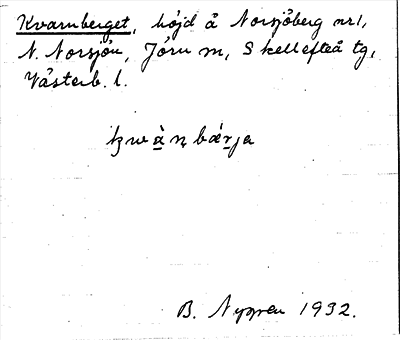 Kvarnberget, höjd å Norsjöberg nr 1,
N. Norsjön, Jörn sn, Skellefteå tg,
Västerb. l.
kwàn bǽrja
B. Nygren 1932.